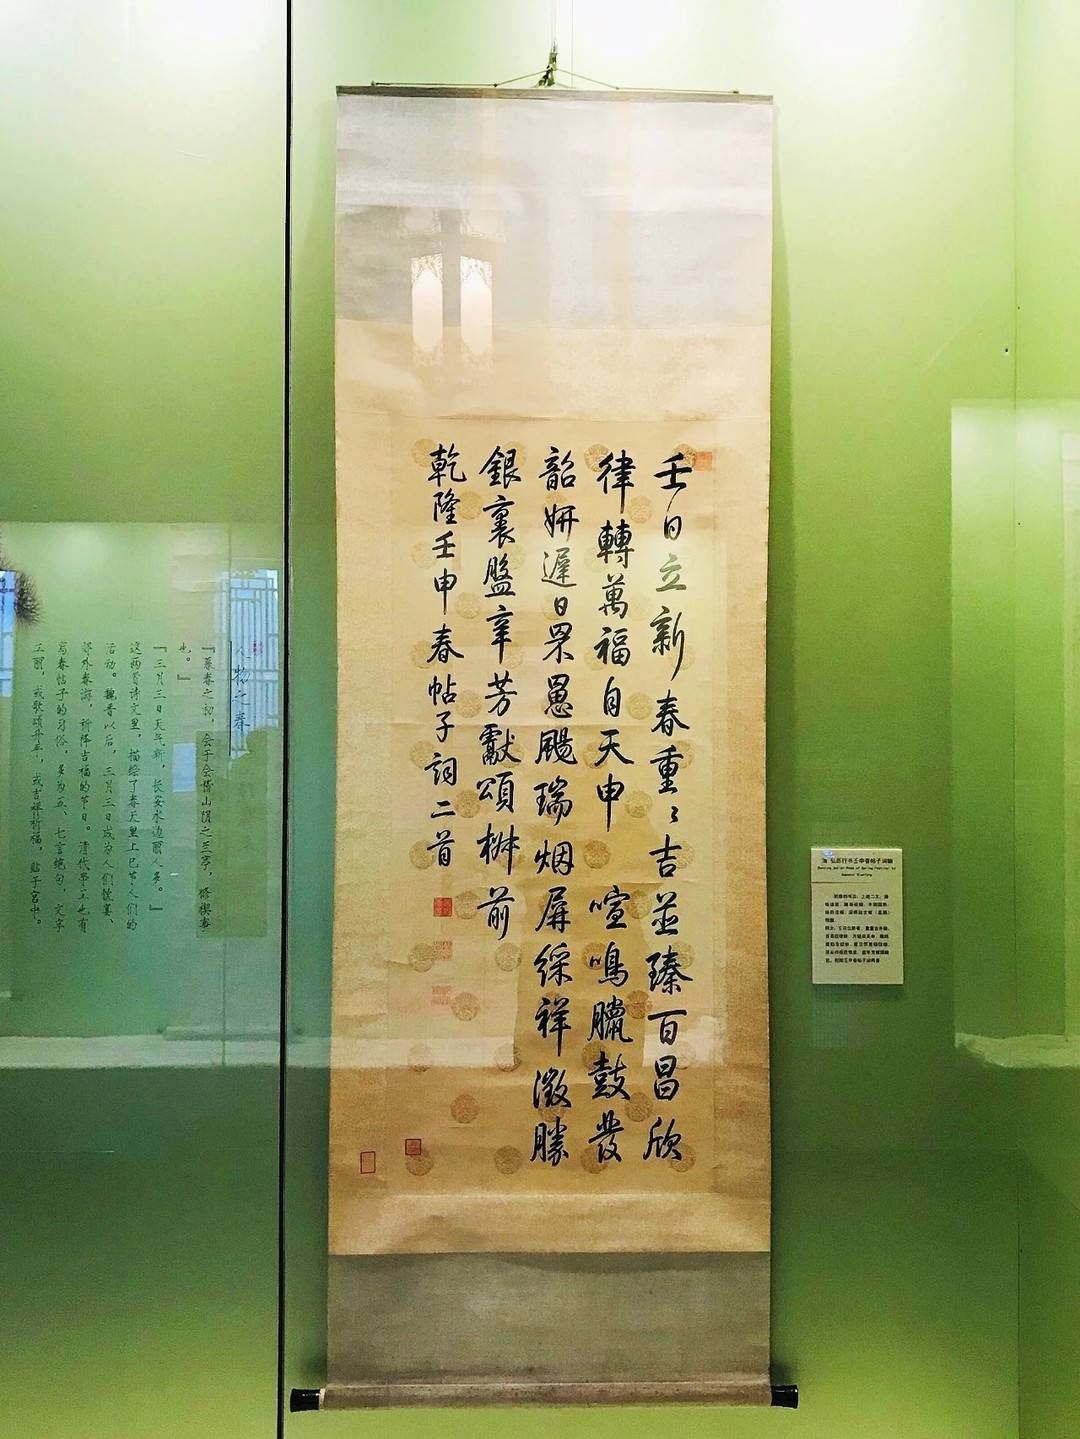 壬日立新春重〻吉並臻百昌欣
律轉萬福自天申 喧鳴臘鼓發
韶妍遲日罘罳颺瑞烟屏綵祥徵勝
銀裏盤辛芳獻頌椒前
乾隆壬申春帖子詞二首
清 弘历行书壬申春帖子词轴
人物之春
『暮春之初，会于会稽山阴之兰亭，修禊事
也。』
『三月三日天气新，长安水边丽人多。』
这两首诗文里，描绘了春天里上巳节人们的
活动。魏晋以后，三月三日成为人们饮宴、
郊外春游、祈降吉福的节日。清代帝王也有
写春帖子的习俗，多为五、七言绝句，文字
工丽，或歌颂升平，或吉祥祈福，贴于宫中。